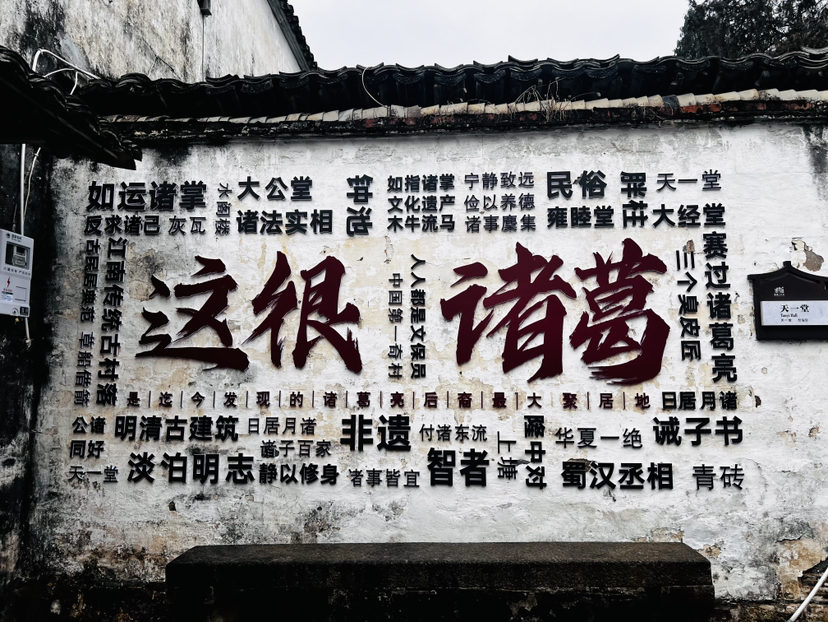 如运诸掌
大公堂
钟池
如指诸掌
宁静致远
民俗
天一堂
反求诸己
灰瓦
诸法实相
文化遗产
俭以养德
木牛流马
诸事麇集
雍睦堂
大经堂
江南传统古村落
草船借箭
这很
人人都是文保员
中国第一奇村
诸葛
三个臭皮匠
赛过诸葛亮
天一堂
是|迄|今|发|现|的|诸|葛|亮|后|裔|最|大|聚|居|地
日居月诸
公诸
同好
明清古建筑
日居月诸
诸子百家
非遗
付诸东流
上塘
隆中对
华夏一绝
诫子书
天一堂
淡泊明志
静以修身
诸事皆宜
智者
蜀汉丞相
青砖